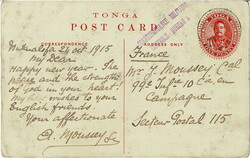 TONGA
POST CARD
CORRESPONDENCE
ADDRESS ONLY
Nukualofa 24 oct. 1915
My Dear
Happy new year. The
peace and the strength
of God in your heart!
My wishes to your
English friends.
Your affectionate
A. Moussey
France
Mr J. Moussey Cal
99e Infie 10 Cie en
Campagne
Secteur Postal 115